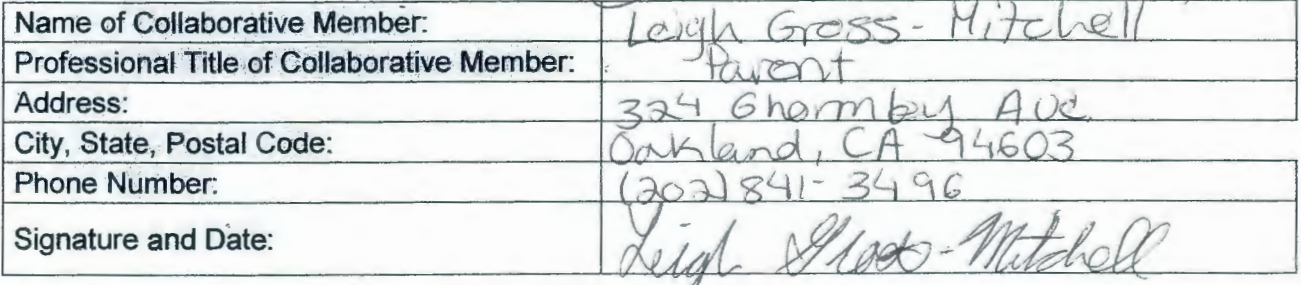 Name of Collaborative Member: Leigh Gross-Mitchell
Professional Title of Collaborative Member: Parent
Address: 324 Ghormley Ave.
City, State, Postal Code: Oakland, CA 94603
Phone Number: (202) 841-3496
Signature and Date: Leigh Gross-Mitchell